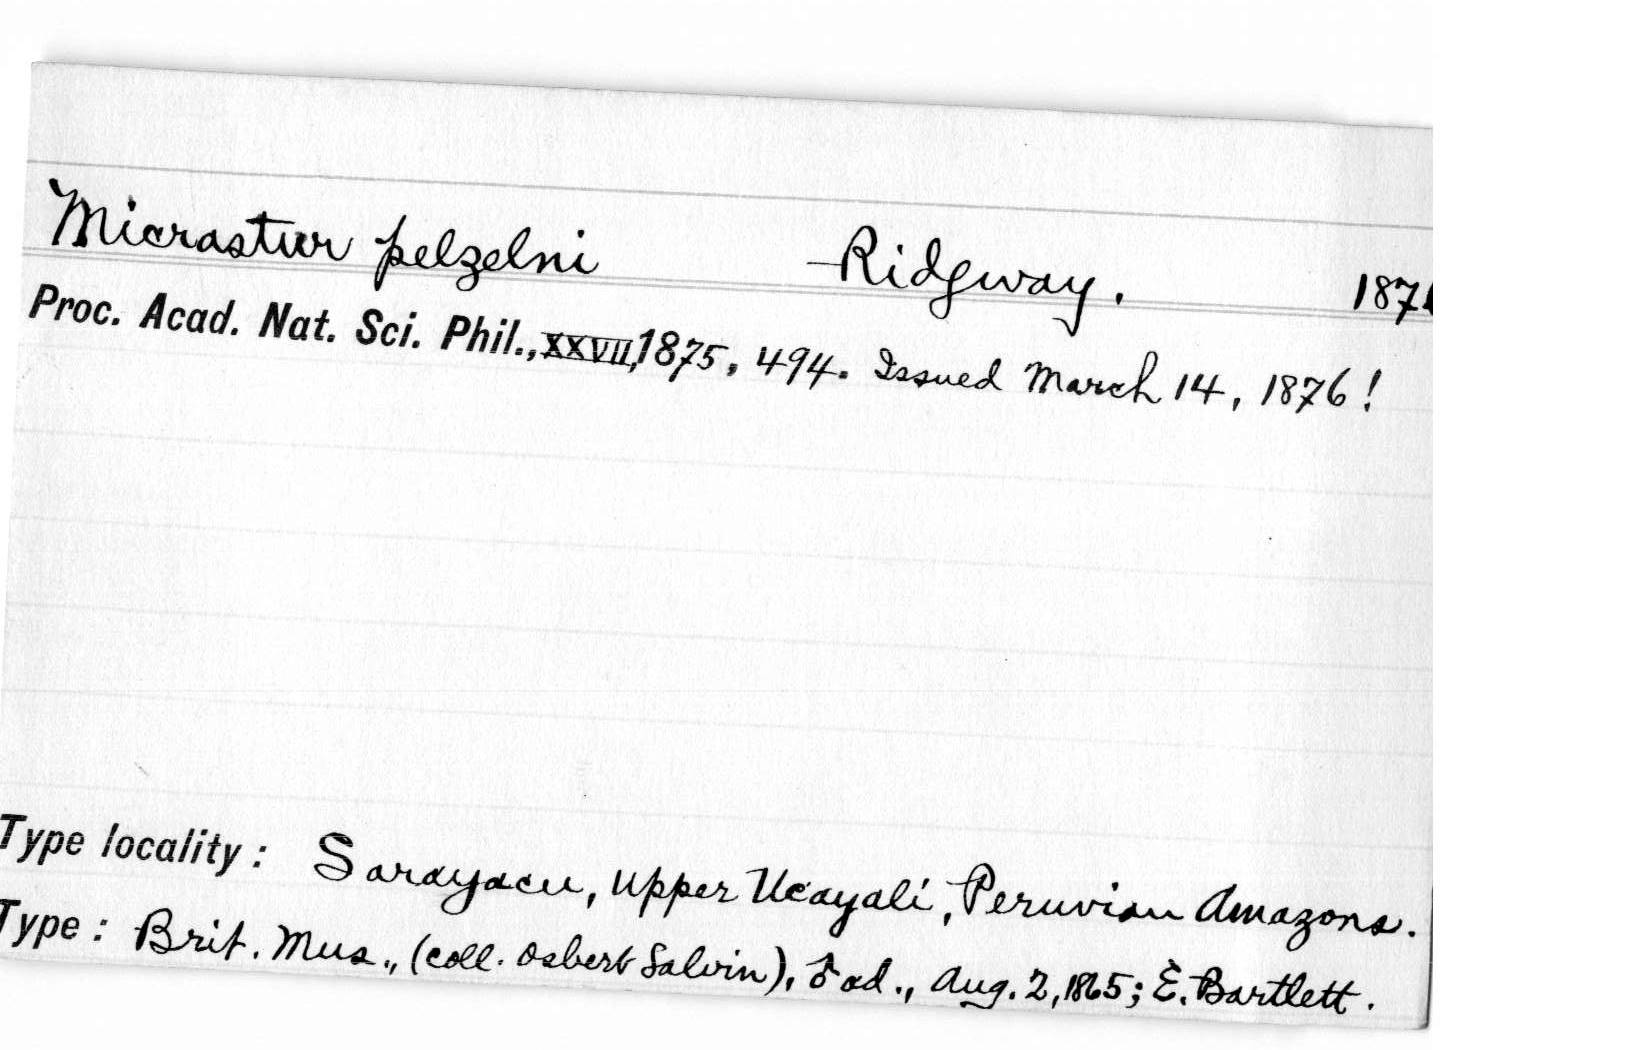 Micrastur pelzelni Ridgway. 187
Proc. Acad. Nat. Sci. Phil., XXVII, 1875, 494. Issued March 14, 1876!
Type locality: Sarayacu, Upper Ucayali, Peruvian Amazons.
Type: Brit. Mus., (coll. Osbert Salvin), ♂ ad., Aug. 2, 1865; E. Bartlett.